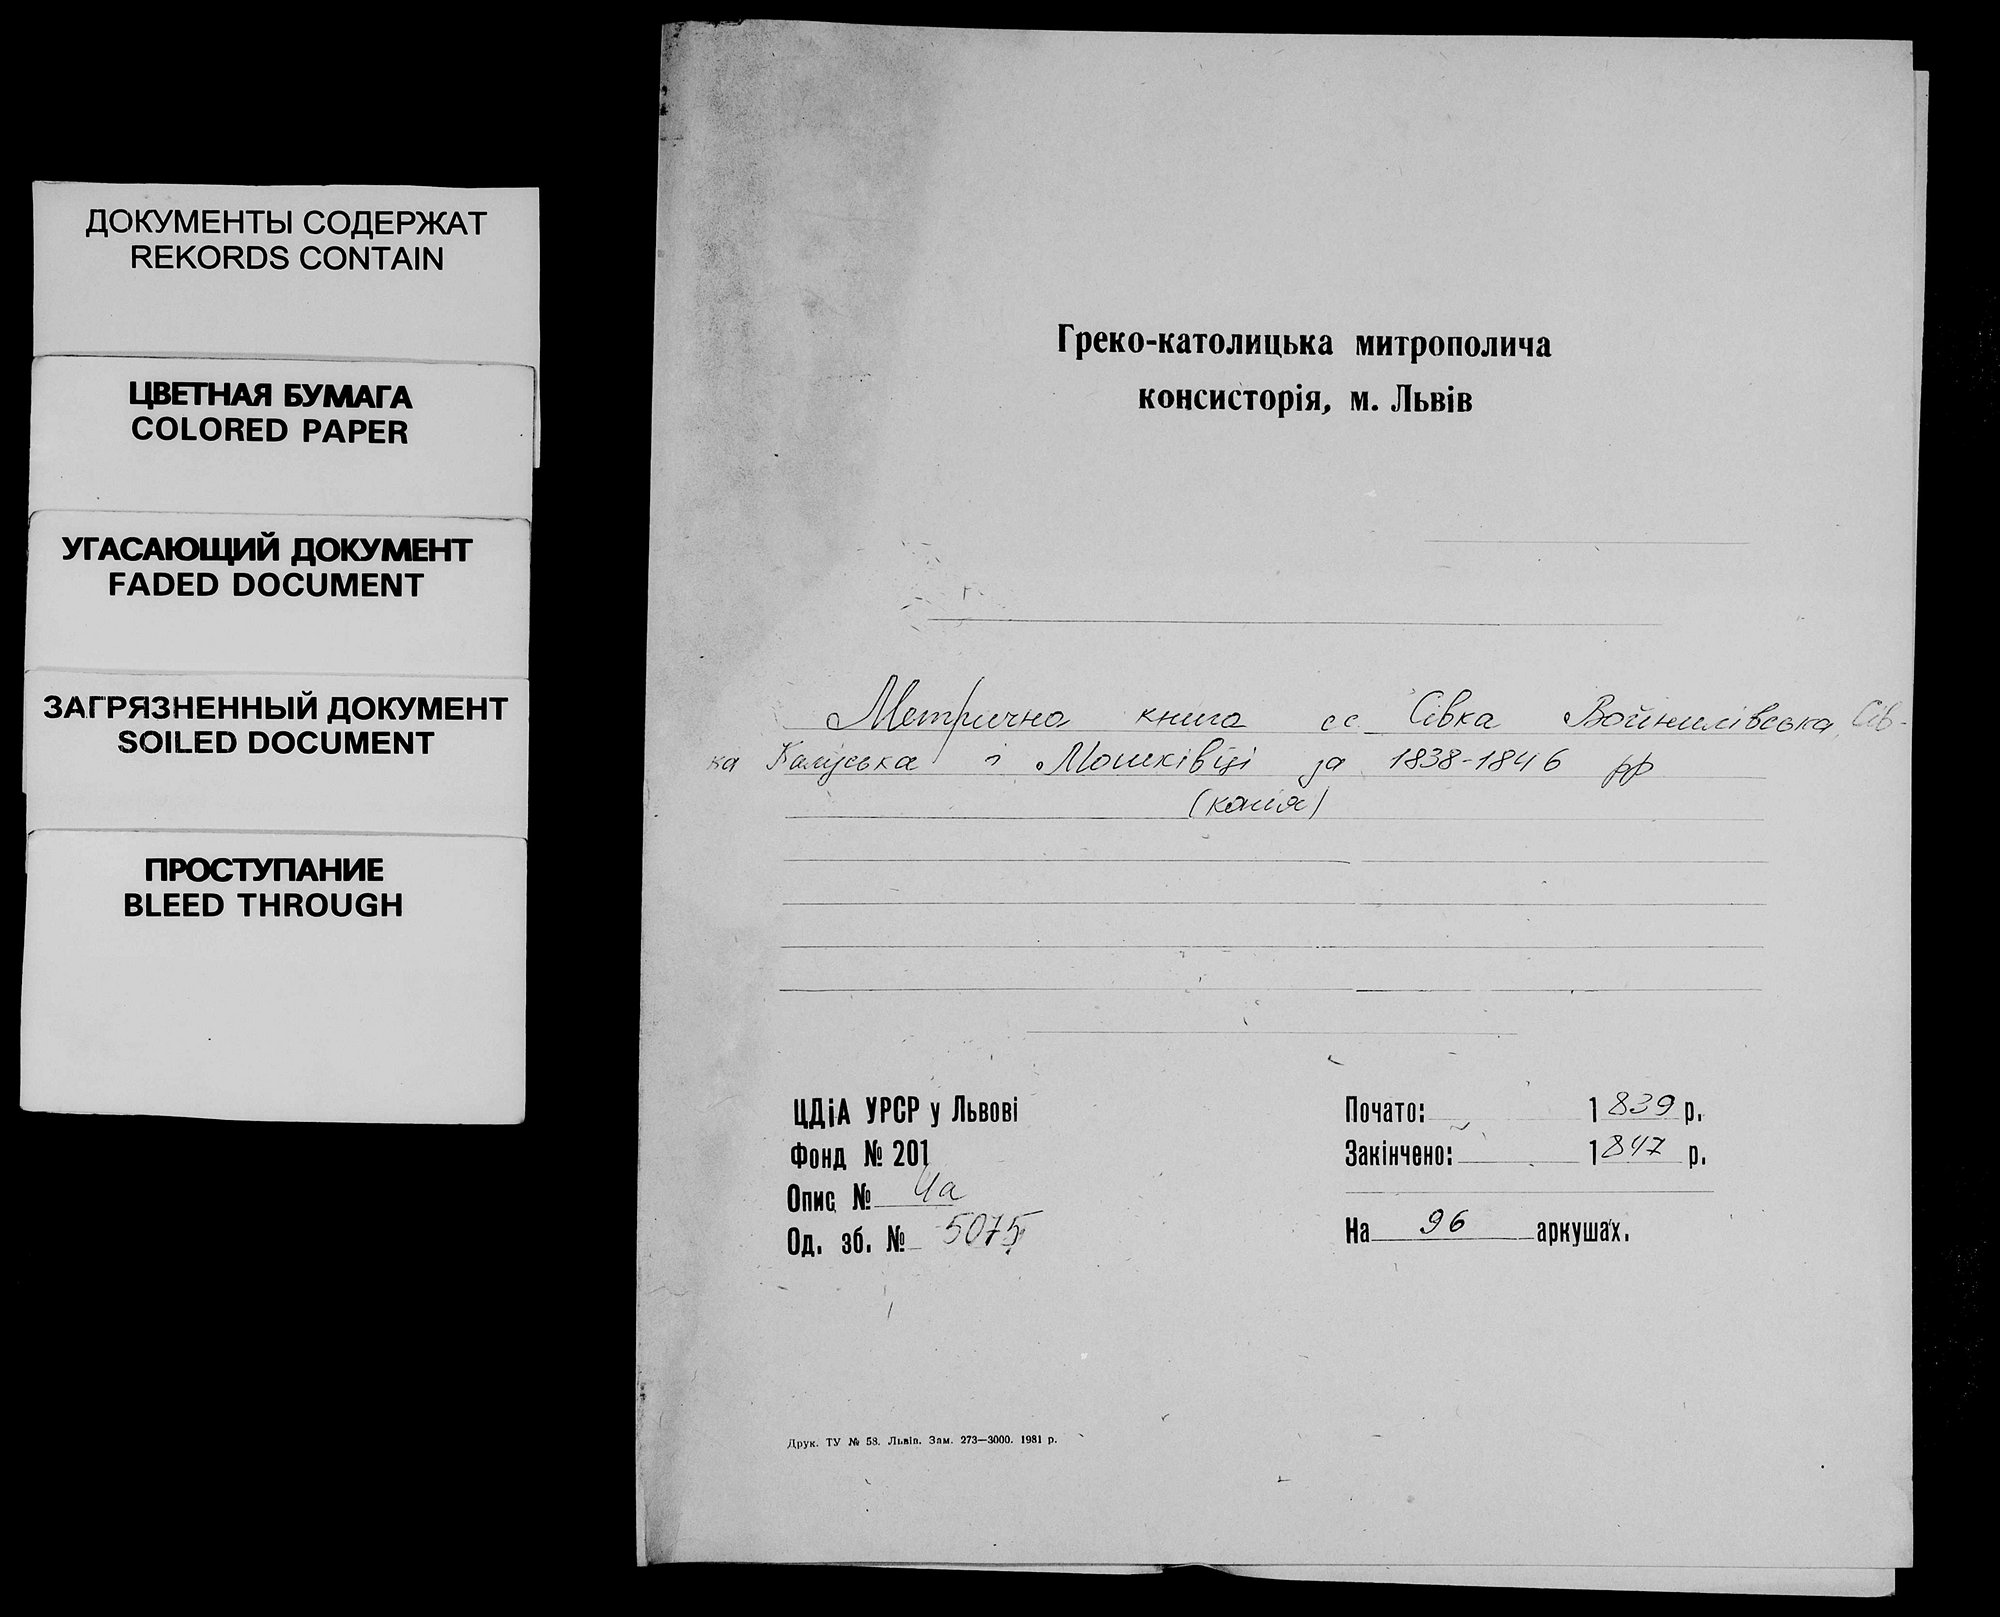 ДОКУМЕНТЫ СОДЕРЖАТ
REKORDS CONTAIN
ЦВЕТНАЯ БУМАГА
COLORED PAPER
УГАСАЮЩИЙ ДОКУМЕНТ
FADED DOCUMENT
ЗАГРЯЗНЕННЫЙ ДОКУМЕНТ
SOILED DOCUMENT
ПРОСТУПАНИЕ
BLEED THROUGH
Греко-католицька митрополича
консисторія, м. Львів
Метрична книга сс. Сівка Войнилівська, Сів-
ка Калуська і Мошківці за 1838-1846 рр
(копія)
ЦДіА УРСР у Львові
Фонд № 201
Опис № 4а
Од. зб. № 5075
Почато: 1839 р.
Закінчено: 1847 р.
На 96 аркушах.
Друк. ТУ № 58. Львів. Зам. 273—3000. 1981 р.